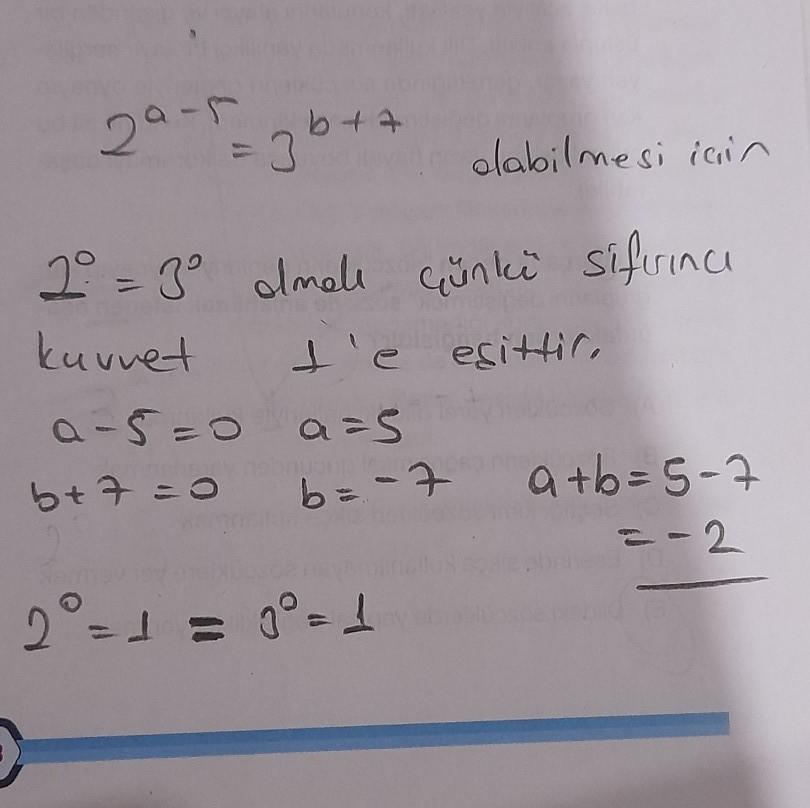 2^(a-5) = 3^(b+7) olabilmesi için
2⁰ = 3⁰ olmalı çünkü sıfırıncı
kuvvet 1'e eşittir.
a-5=0 a=5
b+7=0 b=-7 a+b=5-7
=-2
2⁰=1 = 3⁰=1